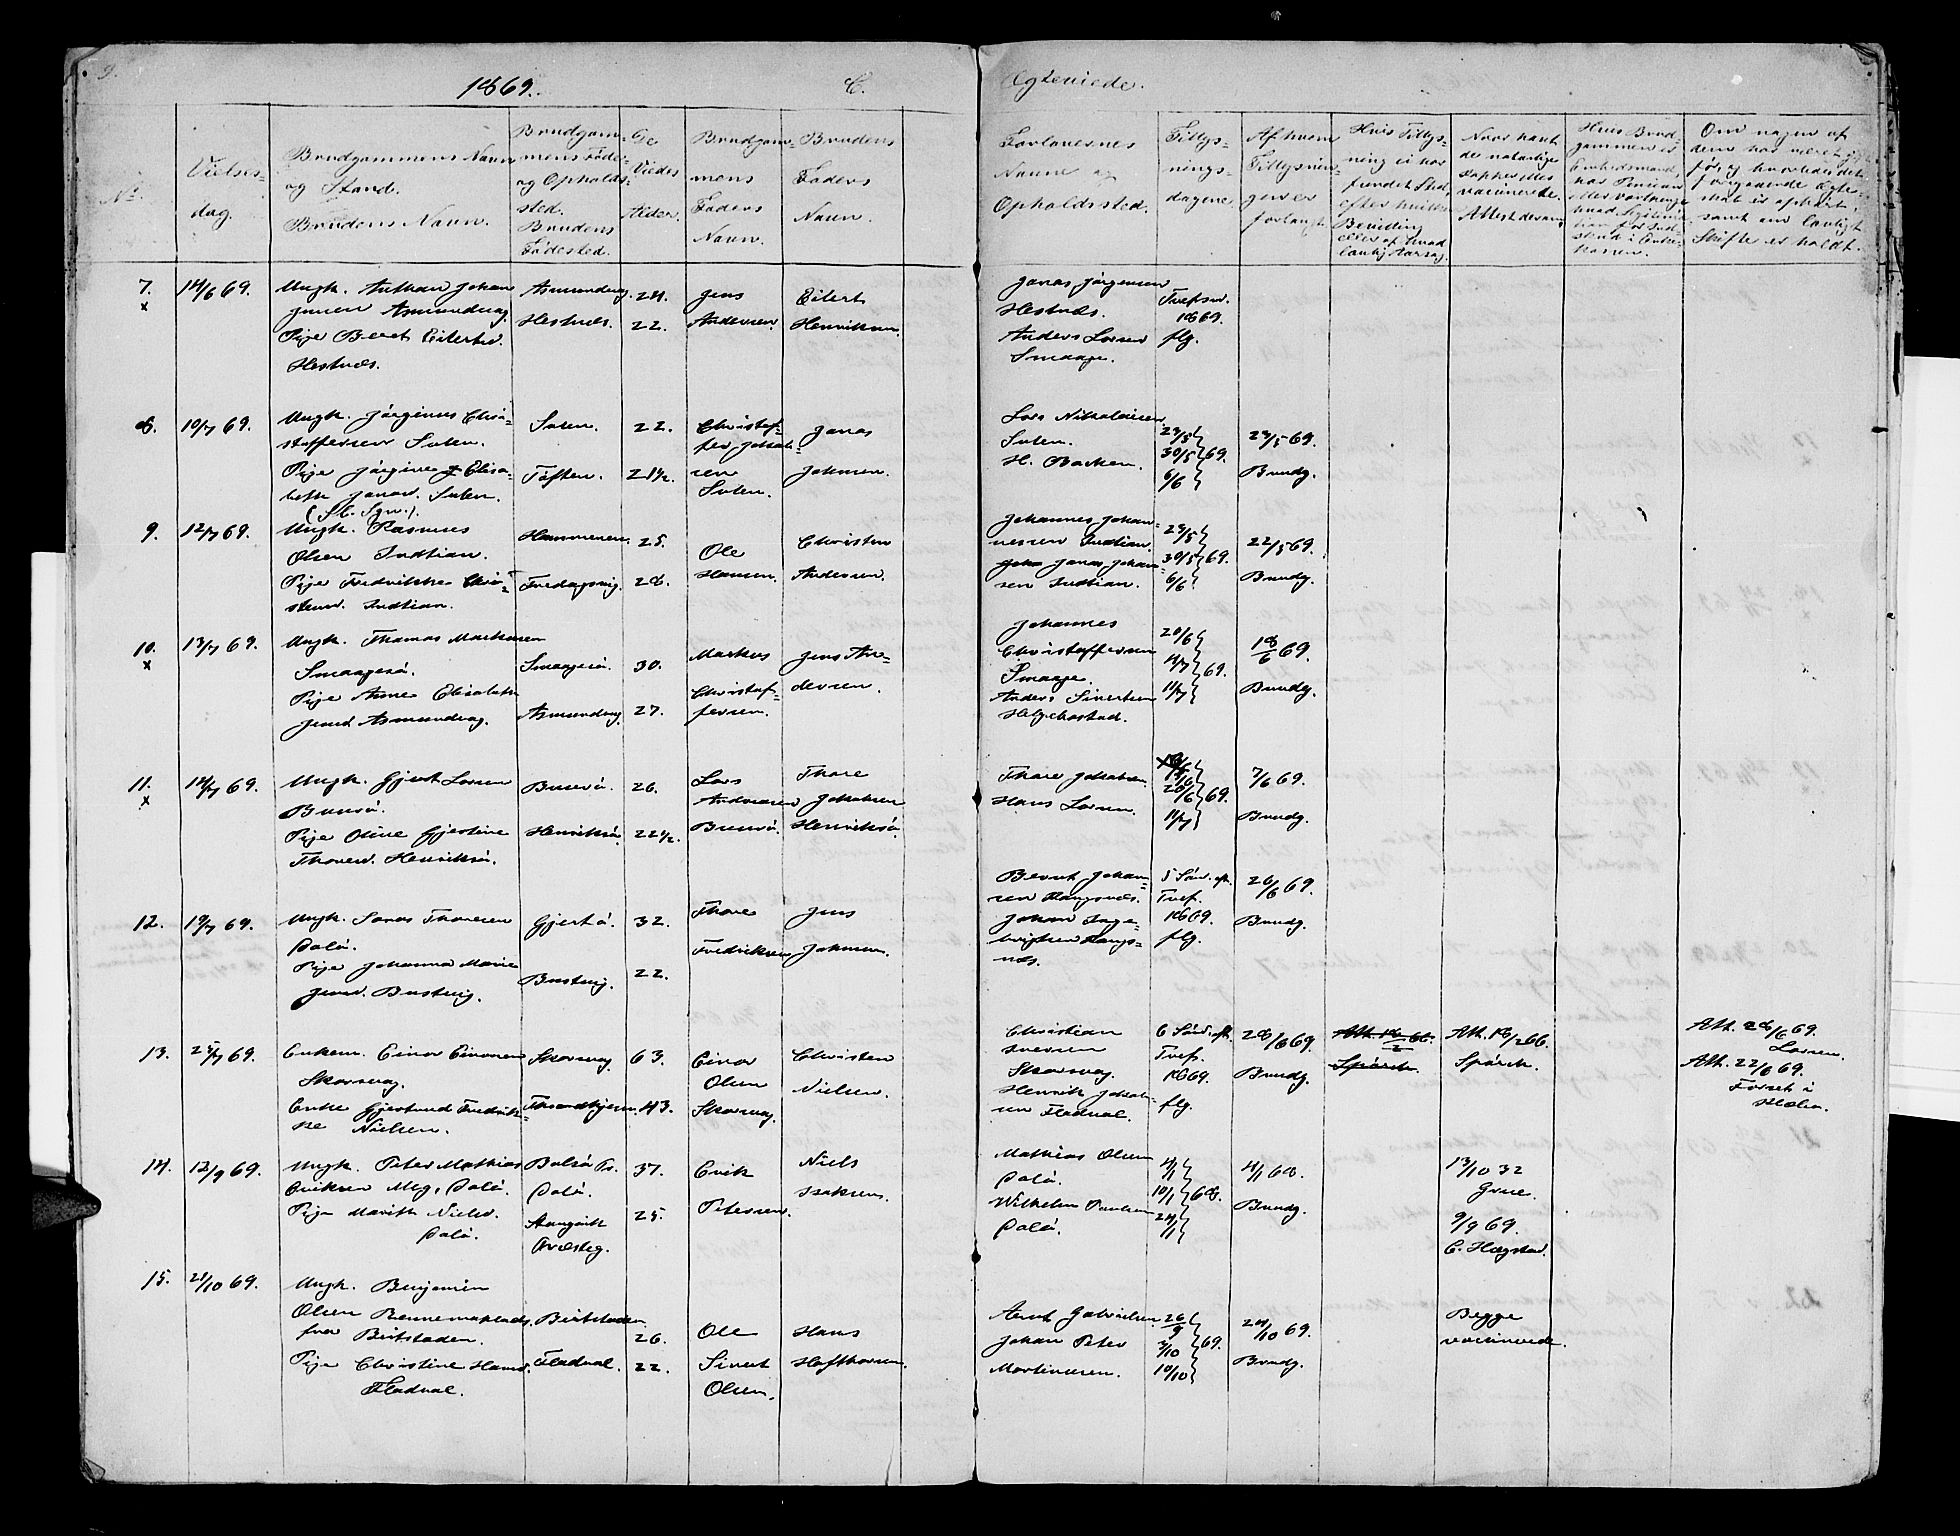 9.
1869.
C.
Ægteviede.
No.
Vielses-
dag.
Brudgommens Navn
og Stand.
Brudens Navn.
Brudgom-
mens Føde-
og Opholds-
sted.
Brudens
Fødested.
De
Viedes
Alder.
Brudgom-
mens
Faders
Navn.
Brudens
Faders
Navn.
Forlovernes
Navne og
Opholdssted.
Tillys-
nings-
dagene.
Af hvem
Tillysnin-
gen er
forlangt.
Hvis Tillys-
ning ei har
fundet Sted,
efter hvilken
Bevilling
eller af hvad
lovlig Aarsag.
Naar havt
de naturlige
Kopper eller
vaccinerede.
Attest derom.
Hvis Brud-
gommen er
Embedsmand,
har Pension
kassen.
Om nogen af
dem har været gift
før, og hvorledes det
foregaaende Ægte-
skab er ophævet,
samt om lovligt
Skifte er holdt.
7.
x
14/6 69.
Ungk. Anthon Johan
Jensen Asmundvag.
Pige Beret Eilertsd.
Hestnæs.
Asmundvag
Hestnæs.
24.
22.
Jens
Andersen
Eilert
Henriksen.
Jonas Jørgensen
Hestnæs.
Anders Larsen
Smaage.
Trefsw.
1869.
flg.
8.
10/7 69.
Ungk. Jørginus Chri-
stoffersen Sulen.
Pige Jørgine Elisa-
beth Jonasd. Sulen.
Sulen.
Toften.
22.
21 1/2.
Christof-
fer Johan-
sen
Sulen.
Jonas
Johnsen.
Lars Nikolaisen
Sulen.
H. Backen.
23/5
30/5 69.
6/6
23/5 69.
Brudg.
9.
12/7 69.
Ungk. Rasmus
Olsen Indtian.
Pige Fredrikke Chri-
stensd. Indtian.
Hammeren.
Fredagsvig.
25.
28.
Ole
Hansen.
Christen
Andersen.
Johannes Johan-
nessen Indtian.
Jonas Johan-
sen Indtian.
23/5
30/5 69.
6/6
22/5 69.
Brudg.
10.
x
13/7 69.
Ungk. Thomas Markusen
Smaagesø.
Pige Anne Elisabeth
Jensd. Asmundvag.
Smaagesø.
Asmundvag
30.
27.
Markus
Christof-
fersen.
Jens An-
dersen.
Johannes
Christoffersen
Smaage.
Anders Sivertsen
Helgebostad.
20/6
4/7 69.
11/7
18/6 69.
Brudg.
11.
x
14/7 69.
Ungk. Gjert Larsen
Burøö.
Pige Oline Gjertine
Thoresd. Henriksø.
Burøö.
Henriksø.
26.
22 1/2.
Lars
Andreasen
Burøö.
Thore
Johnsen
Henriksø.
Thore Johnsen.
Hans Larsen.
13/6
20/6 69.
11/7
7/6 69.
Brudg.
12.
19/7 69.
Ungk. Jonas Thoresen
Dolø.
Pige Johanna Marie
Jensd. Bustvig.
Gjertø.
Bustvig.
32.
22.
Thore
Fredriksen
Jens
Johnsen.
Bernt Johan-
sen Kongsnæs.
Johan Inge-
brigtsen Kongs-
næs.
5 Sønd. eft.
Tref.
1869.
flg.
26/6 69.
Brudg.
13.
25/7 69.
Enkem. Einar Einarsen
Skarsvag.
Enke Gjertrud Fredrik-
ke Nielsen.
Skarsvag
Throndhjem.
63.
43.
Einar
Olsen
Skarsvag
Christen
Nielsen.
Christian
Iversen
Skarsvag
Henrik Johan-
sen Fladval.
6 Sønd. eft.
Tref.
1869.
flg.
28/6 69.
Brudg.
Att. 18/2 66.
Spörck.
Att. 18/2 66.
Spörck.
Att. 28/6 69.
Larsen.
Att. 22/6 69.
Forseth i
Melhu.
14.
12/9 69.
Ungk. Peter Mathias
Eriksen Mlg. Dolø.
Pige Marith Nielsd.
Dolø.
Bolsø Pr.
Dolø.
Stangvik
Præsteg.
37.
25.
Erik
Petersen.
Niels
Isaksen.
Mathias Olsen
Dolø.
Wilhelm Paulsen
Dolø.
4/1
10/1 68.
24/1
4/1 68.
Brudg.
13/10 32
Grue.
9/9 69.
C. Hægstad.
15.
21/10 69.
Ungk. Benjamin
Olsen Rennemaplads
fra Beitstaden.
Pige Christine Hansd.
Fladval.
Beitstaden
Fladval.
26.
22.
Ole
Sivert
Olsen.
Hans
Hafthorsen.
Arnt Gabrielsen.
Johan Peter
Martinussen.
26/9
3/10 69.
10/10
24/10 69.
Brudg.
Begge
vaccinerede.